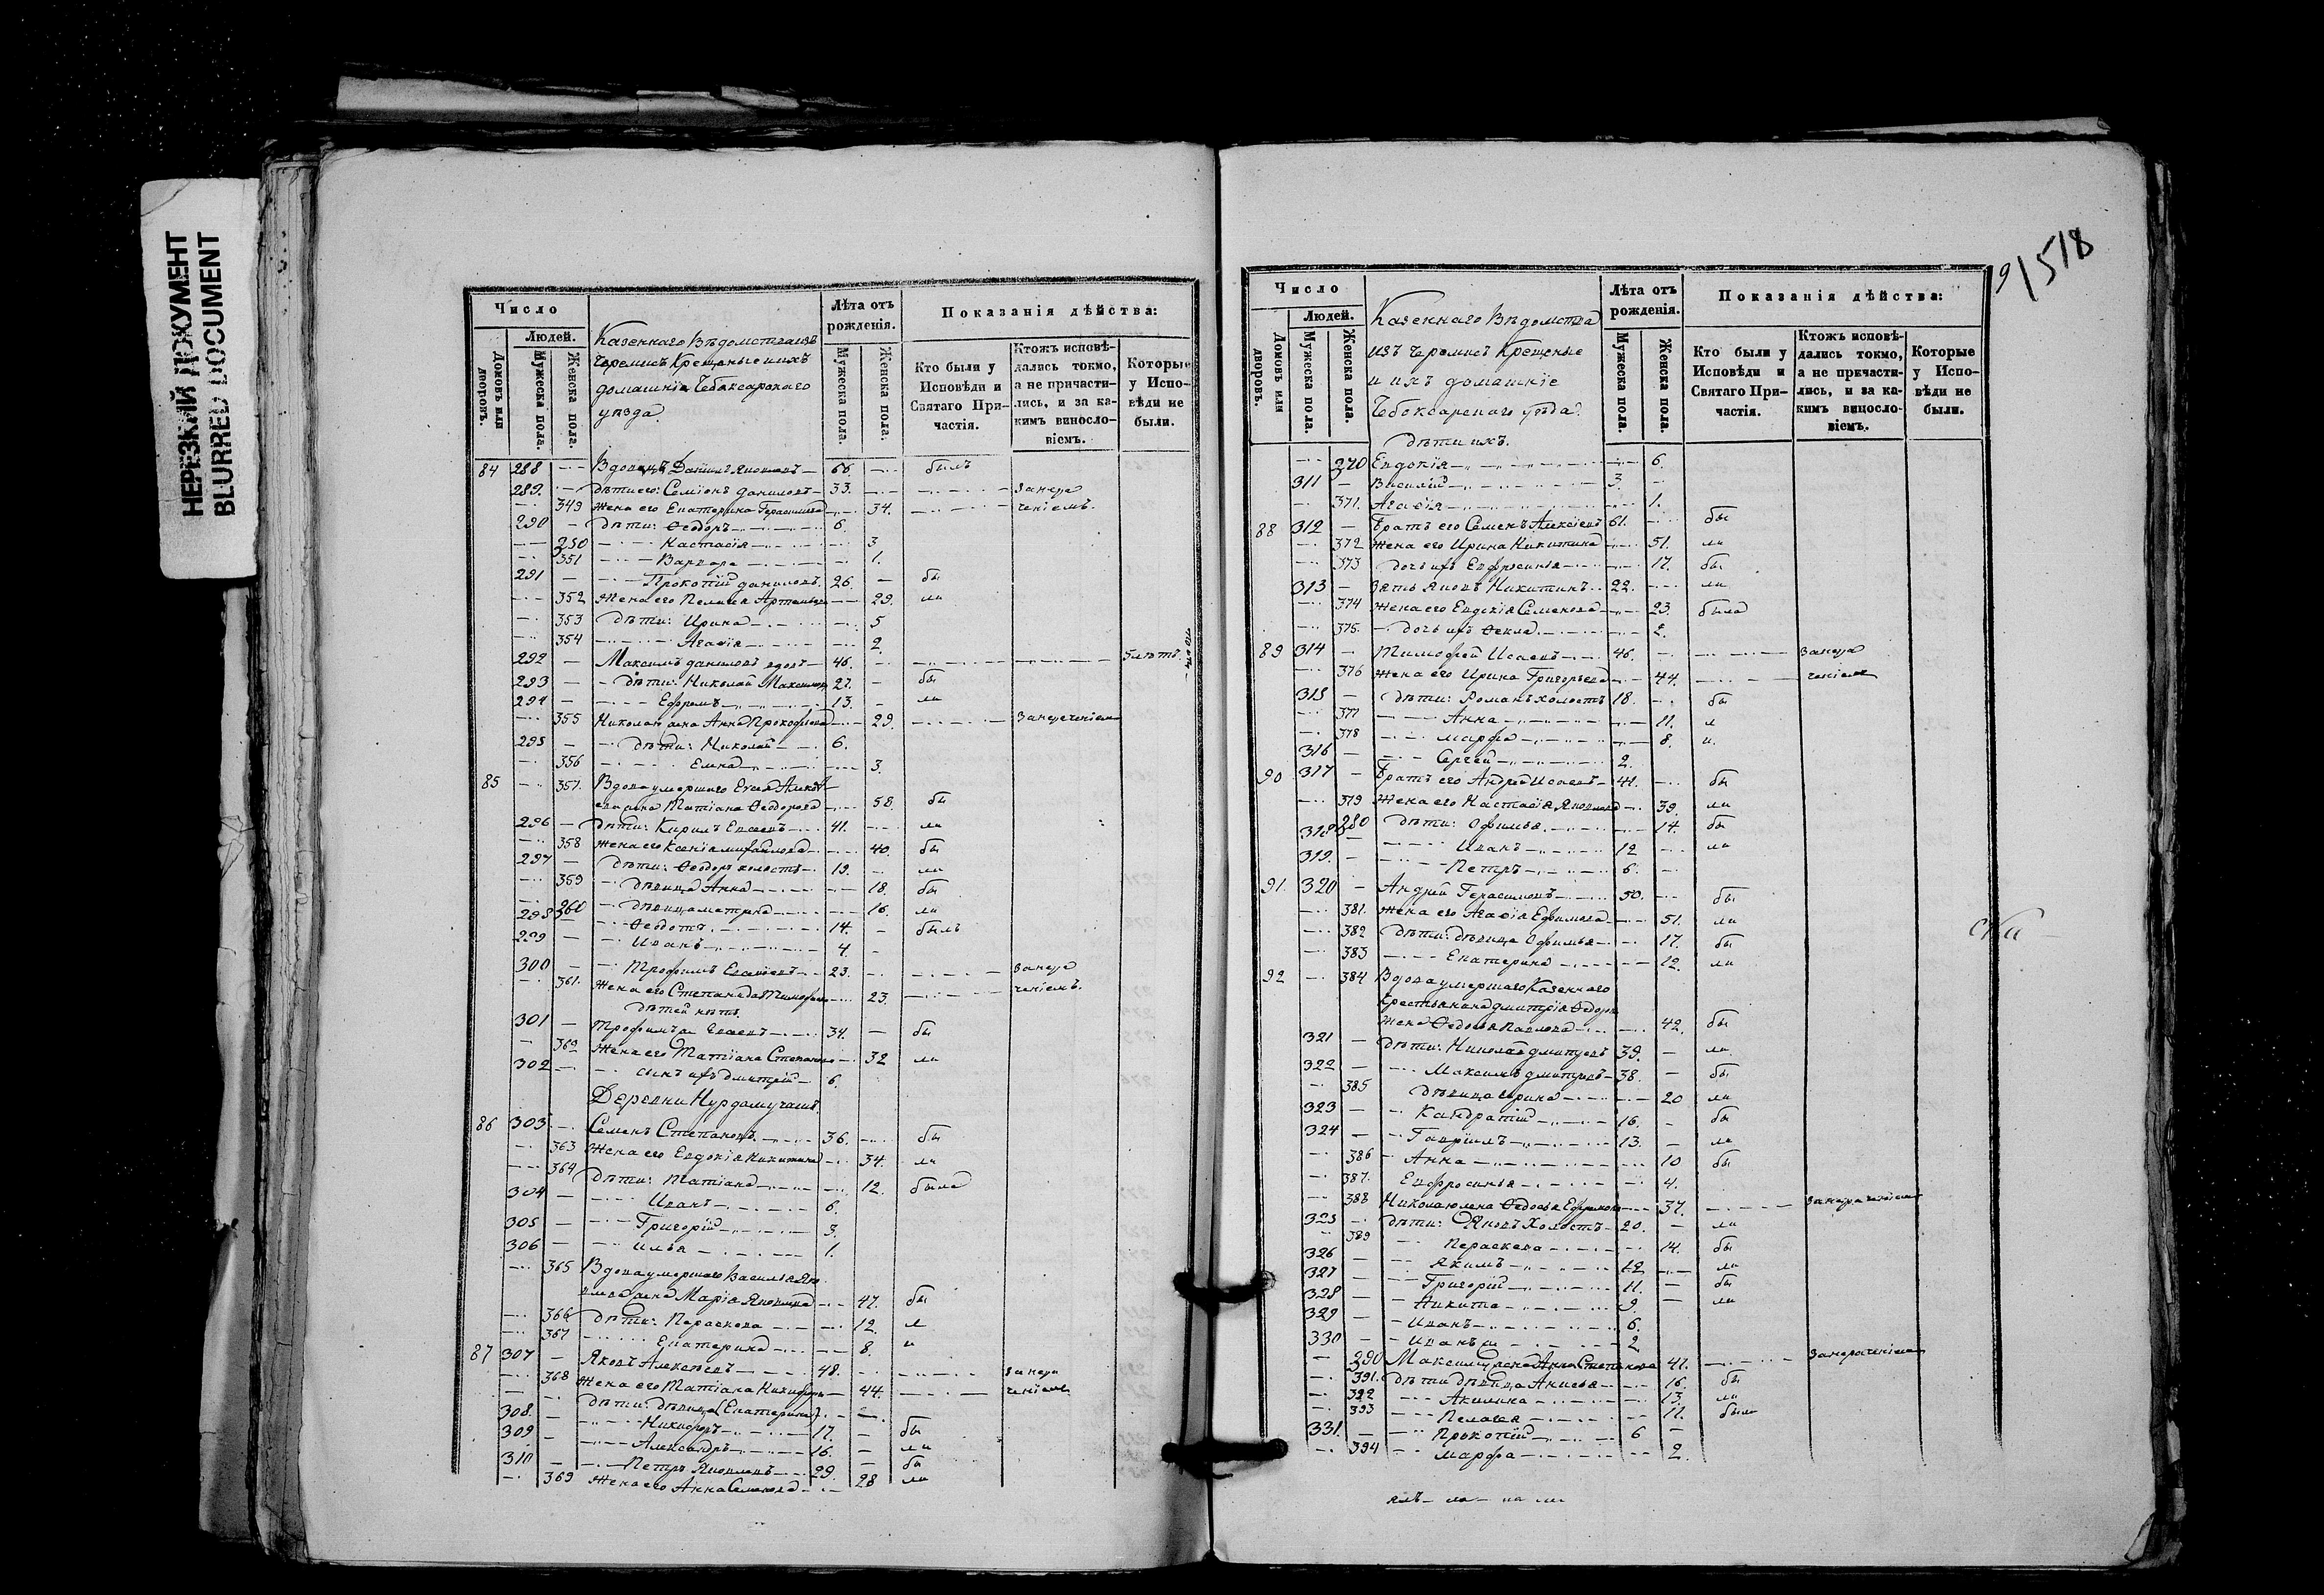 НЕРЕЗКИЙ ДОКУМЕНТ
BLURRED DOCUMENT
Число
Людей.
Домовъ или дворовъ.
Мужеска пола.
Женска пола.
Казеннаго Вѣдомства изъ
Черемисъ Крещеные и ихъ
домашніе Чебоксарскаго
уѣзда
Лѣта отъ рожденія.
Мужеска пола.
Женска пола.
Показанія дѣйства:
Кто были у Исповѣди и Святаго Причастія.
Ктожъ исповѣдались токмо, а не причастились, и за какимъ винословіемъ.
Которые у Исповѣди не были.
84 288 Вдовецъ Даніилъ Яковлевъ 66 былъ
289. Дѣти его: Семіонъ Даниловъ 33. За нера
349 Жена его Екатерина Герасимова 34. ченіемъ.
290 Дѣти: Ѳеодоръ 6.
250 Настасія 3
351 Варвара 1.
291 Прокопій Даниловъ 26 бы
352 Жена его Пелагея Артемьева 29. ли
353 Дѣти: Ирина 5
354 Агафія 2.
292 Максимъ Даниловъ вдовъ 46. 5 лѣтъ
293 Дѣти: Николай Максимовъ 27. бы
294 Ефремъ 13. ли
355 Николая жена Анна Прокофьева 29. За нераченіемъ
295 Дѣти: Николай 6.
356 Елена 3.
85 357. Вдова умершаго Евсея Алексѣ
ева жена Татіана Ѳеодорова 58. бы
296 Дѣти: Кирилъ Евсеевъ 41. ли
358 Жена его Ксенія Михайлова 40. бы
297 Дѣти: Ѳеодоръ холостъ 19. ли
359 Дѣвица Анна 18. бы
260 Дѣвица Матрена 16. ли
298 Ѳедотъ 14. былъ
299 Иванъ 4.
300 Трофимъ Евсеевъ 23. За нера
361. Жена его Степанида Тимофеева 23. ченіемъ.
Дѣтей нѣтъ.
301 Трофимъ Евсеевъ 34. бы
362 Жена его Татіана Степанова 32 ли
302 сынъ ихъ Дмитрій 6.
Деревни Нурдомучашъ
86 303 Семенъ Степановъ 36. бы
363 Жена его Евдокія Никитина 34. ли
364 Дѣти: Татіана 12. была
304 Иванъ 6.
305 Григорій 3.
306 Илья 1.
365 Вдова умершаго Василья Яко
влева жена Марія Яковлева 47. бы
366 Дѣти: Параскева 12. л
367 Екатерина 8. и
87 307 Яковъ Алексѣевъ 48. За нера
368 Жена его Татіана Никифорова 44. ченіемъ
Дѣти: Дѣвица Екатерина
308. Никифоръ 17. бы
309 Александръ 16. ли
310 Петръ Яковлевъ 29. бы
369 Жена его Анна Семенова 28 ли
9 1518
Число
Людей.
Домовъ или дворовъ.
Мужеска пола.
Женска пола.
Казеннаго Вѣдомства
изъ Черемисъ Крещеные
и ихъ домашніе
Чебоксарскаго уѣзда.
Лѣта отъ рожденія.
Мужеска пола.
Женска пола.
Показанія дѣйства:
Кто были у Исповѣди и Святаго Причастія.
Ктожъ исповѣдались токмо, а не причастились, и за какимъ винословіемъ.
Которые у Исповѣди не были.
Дѣти ихъ.
270 Евдокія 6.
311 Василій 3.
371. Агафія 1.
88 312 Братъ его Семенъ Алексіевъ 61. бы
372 Жена его Ирина Никитина 51. ли
373 Дочь ихъ Евфросинья 17. бы
313 Зять Яковъ Никитинъ 22. ли
374 Жена его Евдокія Семенова 23. была
375. дочь ихъ Ѳекла 2.
89 314 Тимофей Исаевъ 46. За нера
376 Жена его Ирина Григорьева 44. ченіемъ
315 Дѣти: Романъ холостъ 18. бы
377 Анна 11. л
378 Марфа 8. и.
316 Сергей 2.
90 317 Братъ его Андрей Исаевъ 41. бы
379 Жена его Настасія Яковлева 39. ли
280 Дѣти: Офимья 14. бы
318 Иванъ 12 ли
319. Петръ 6.
91. 320 Андрей Герасимовъ 50. бы
381. Жена его Агафія Ефимова 51. ли
382 Дѣти: Дѣвица Офимья 17. бы
383 Екатерина 12. ли
92 384 Вдова умершаго Казеннаго
Крестьянина Дмитрія Ѳедоро
Жена Ѳедосья Павлова 42. бы
321 Дѣти: Николай Дмитріевъ 39. ли
322 Максимъ Дмитріевъ 38. бы
385 Дѣвица Ирина 20 ли
323 Кандратій 16. бы
324 Гавріилъ 13. ли
386 Анна 10 бы
387. Евфросинья 4.
388 Николая жена Ѳедосья Ефремова 37. За нераченіемъ
325 Дѣти: Яковъ Холостъ 20. ли
389 Параскева 14. бы
326 Якимъ 12 ли
327 Григорій 11. бы
328 Никита 9. ли
329 Иванъ 6.
330 Иванъ 2
290 Максима жена Анна Степанова 41. За нераченіемъ
391. Дѣти Дѣвица Анисья 16. бы
392 Акилина 13. ли
393 Пелагея 11. была
331. Прокопій 6
394 Марфа 2.
ска